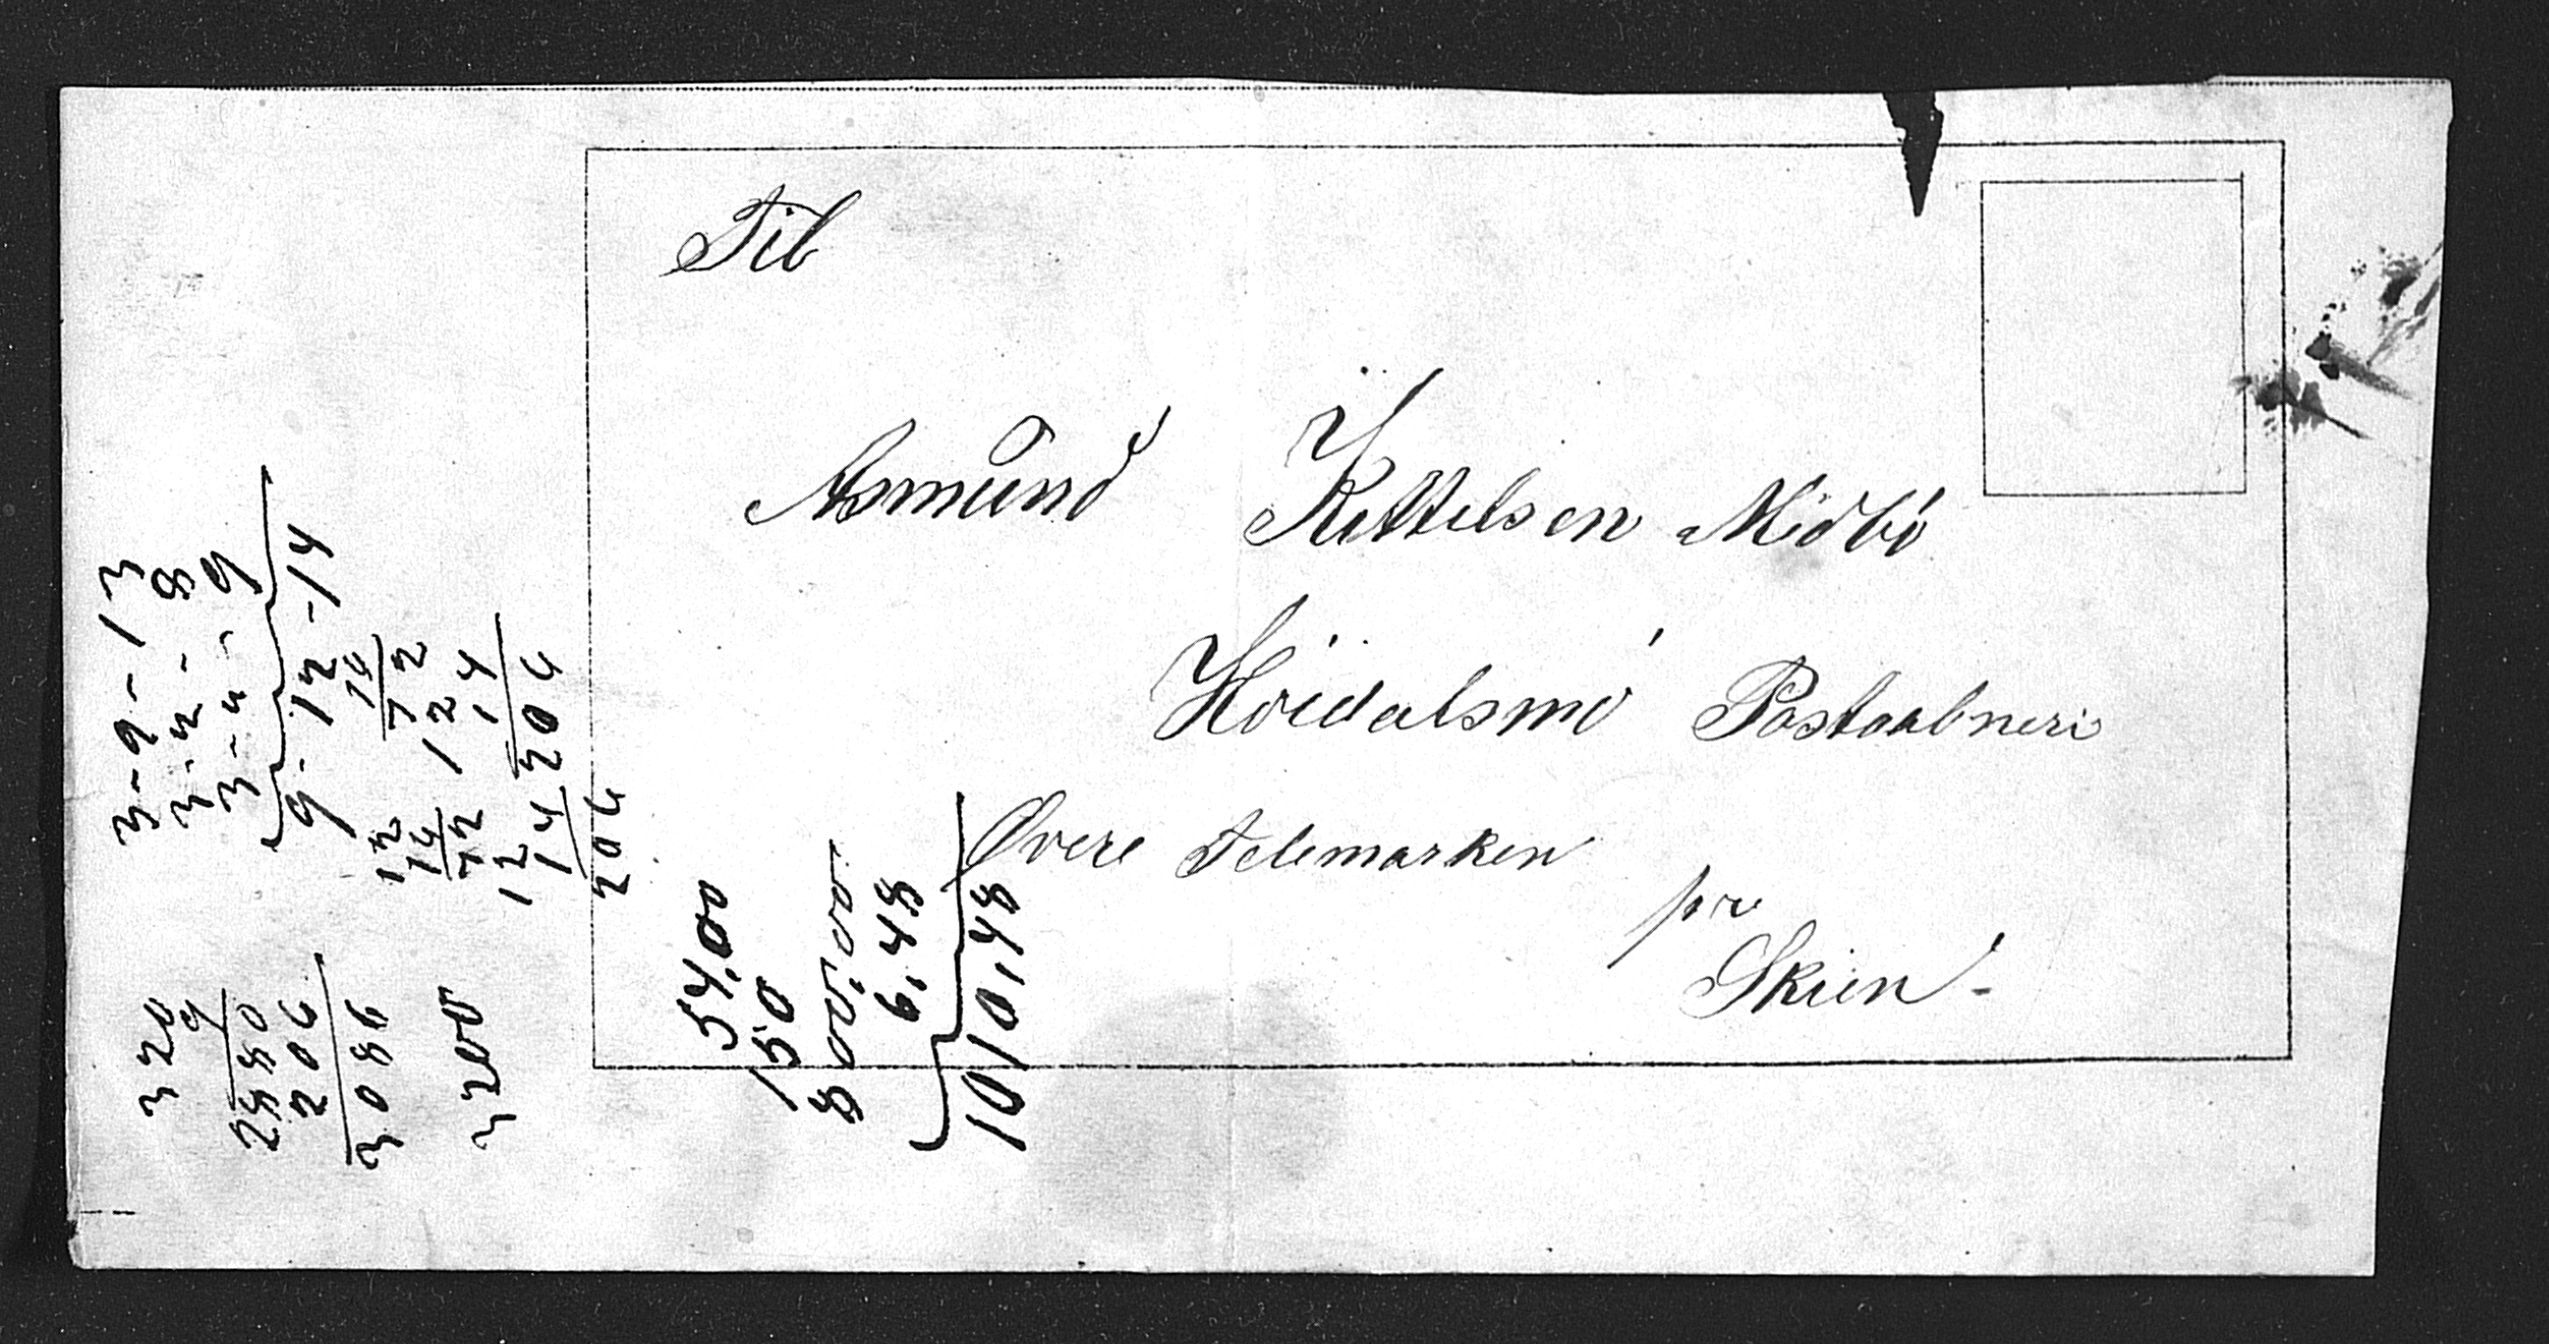 Til
Asmund Kettelsen Midbö
Höidalsmó Postaabneri
Øvere Telemarken
pr
Skien-
3-2-13
3-2-8
3-4-9
9-12-14
12
14
72
12
14
206
124
14
206
320
9
2880
206
3086
3200
54,00
150
800,00
6,48
1010,48